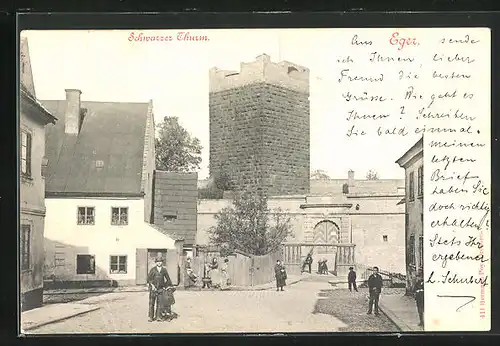 Schwarzer Thurm.
Aus Eger. sende
ich Ihnen, lieber
Freund die besten
Grüsse. Wie geht es
Ihnen? Schreiben
Sie bald einmal.
meinen
letzten
Brief
haben Sie
doch richtig
erhalten?
Stets Ihr
ergebener
L. Schubert